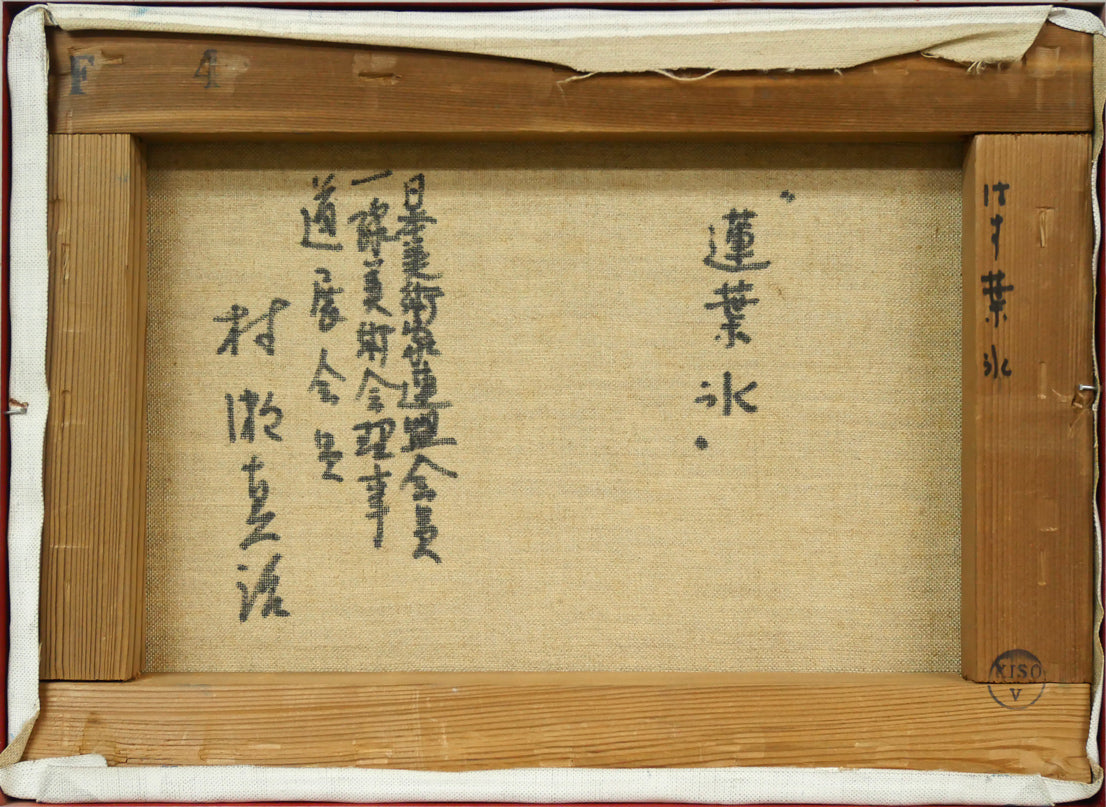 はす葉氷
"蓮葉氷"
日本美術家連盟会員
一線美術会理事
道展会員
村瀬真治
F 4
KISO
V